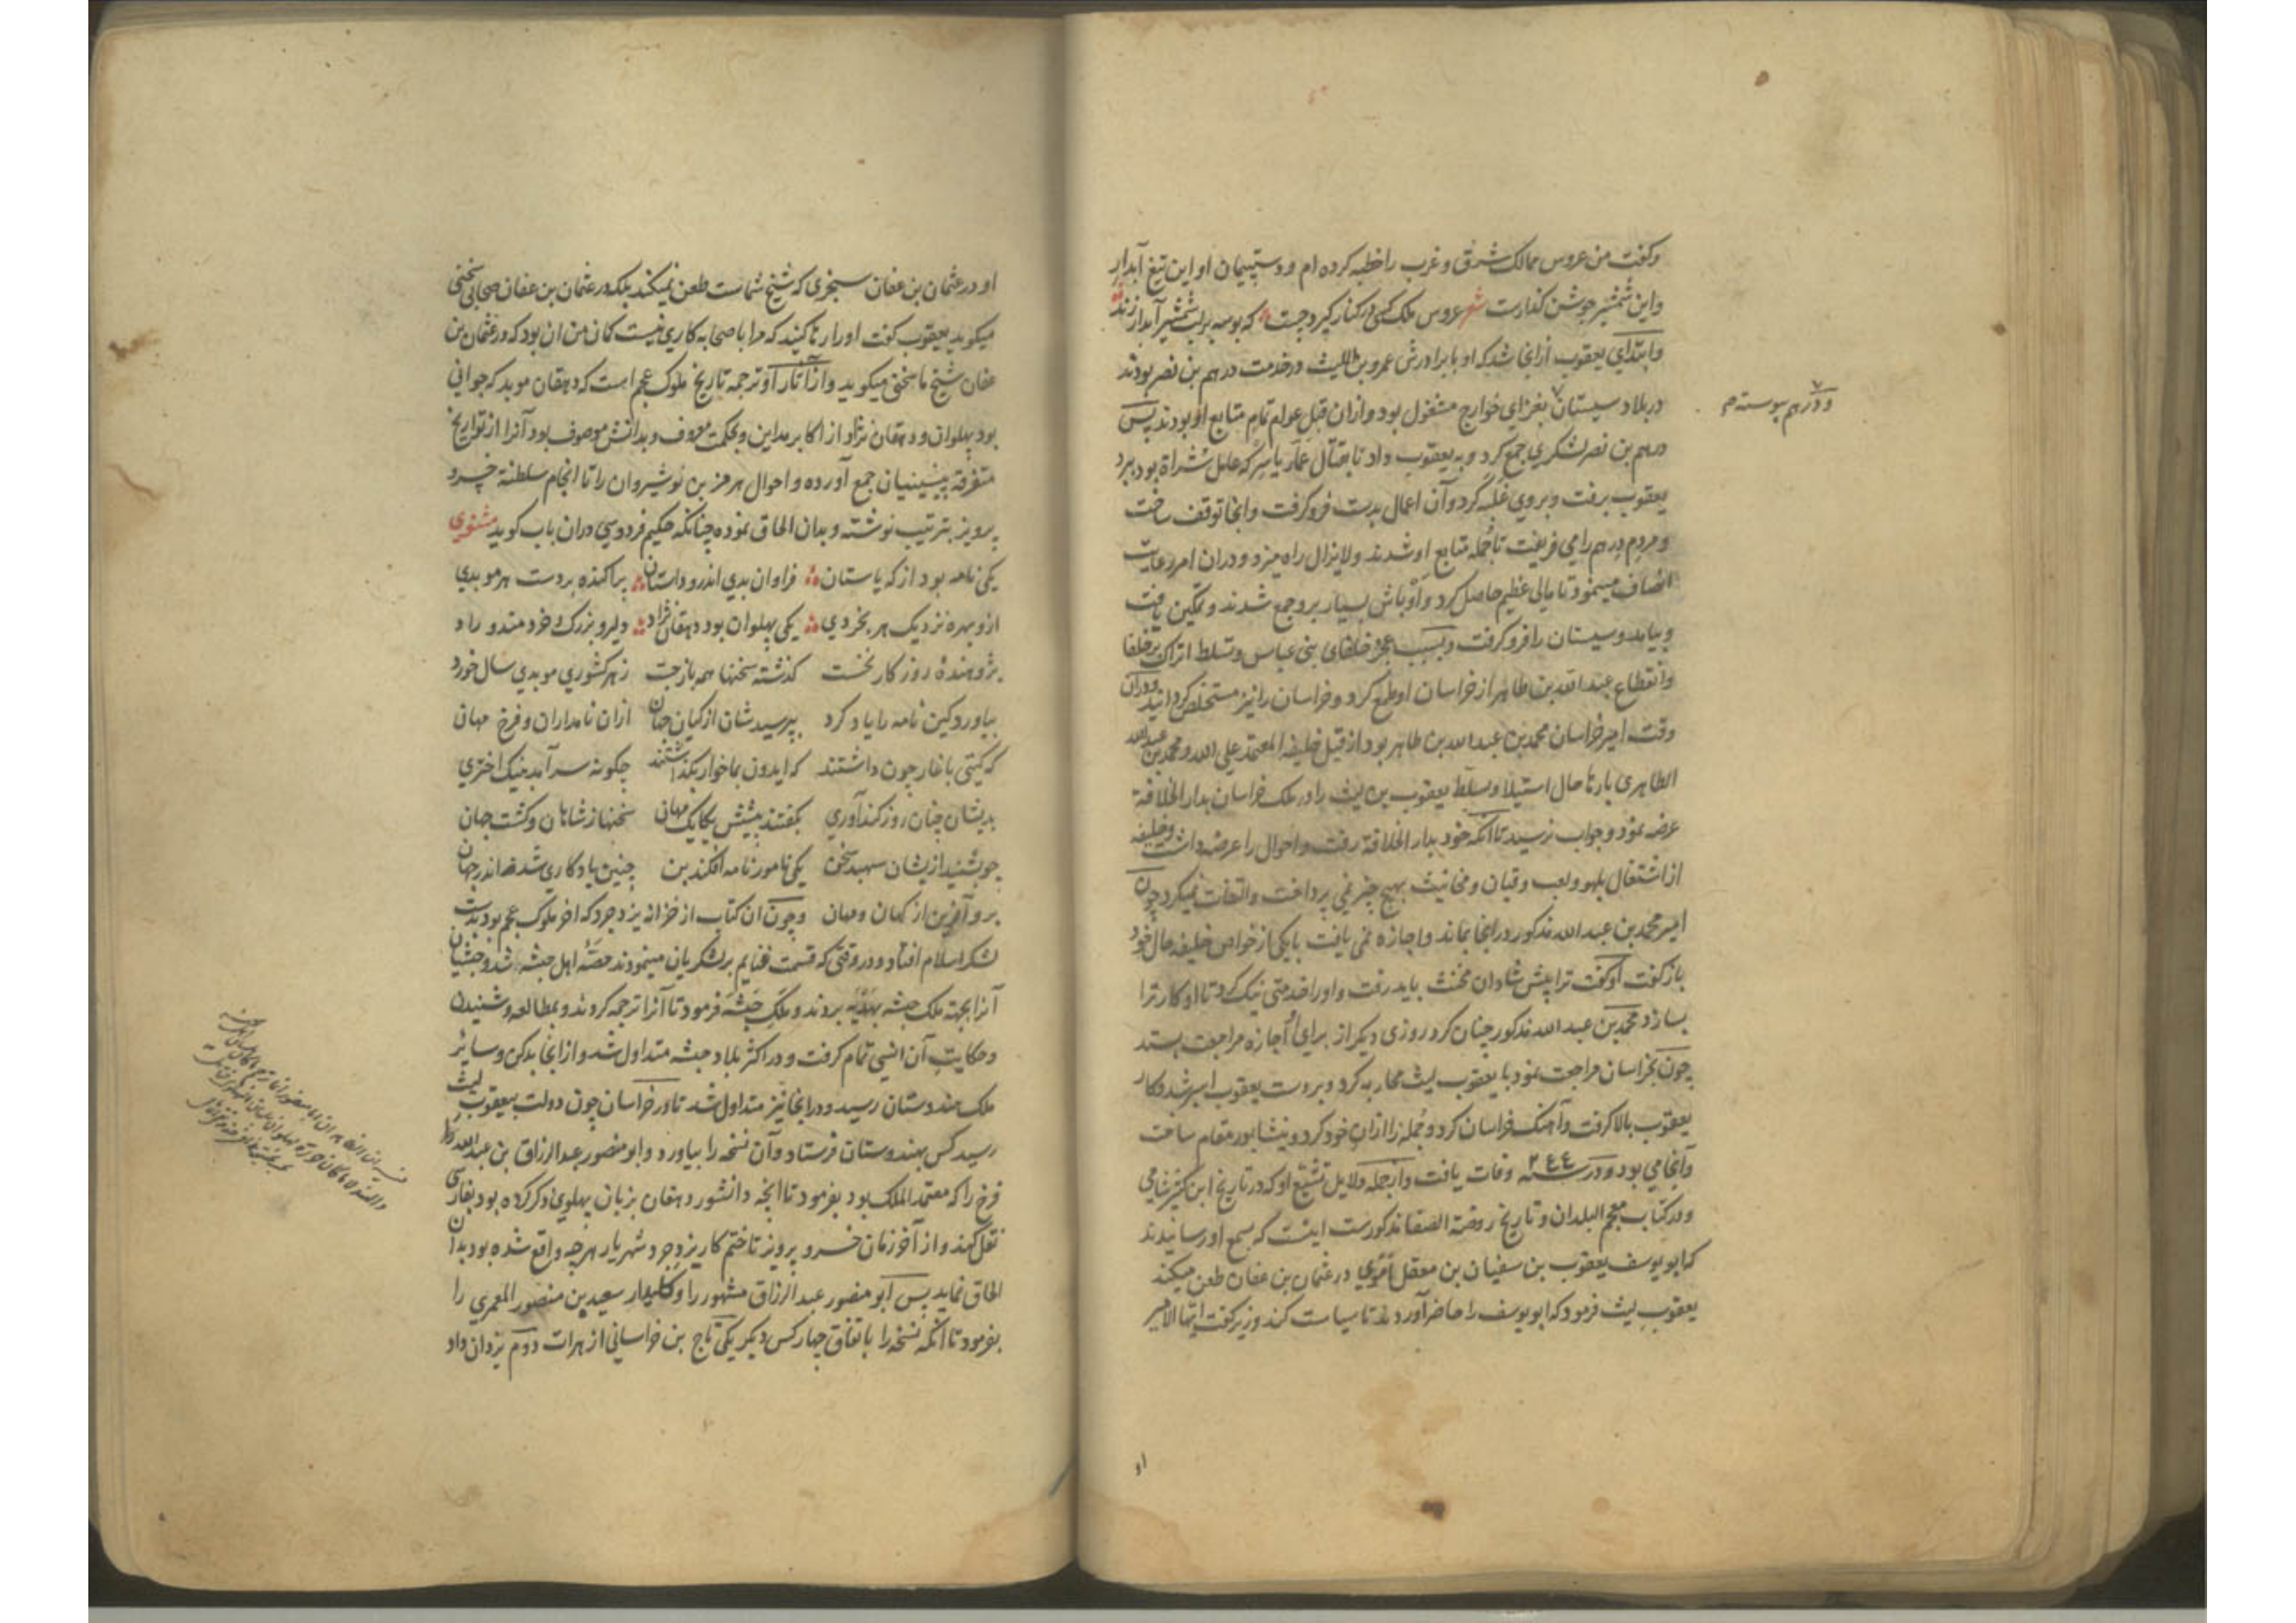 وکفت من عروس ممالک شرق و غرب را خطبه کرده ام و دستپیمان او این تیغ آبدار
و این شمشیر جوشن کذارست شعر عروس ملک کسی در کنار کیرد چست که بوسه بر لب شمشیر آبدار زند
و ابتدای یعقوب ازانجا شد که او با برادرش عمرو بن اللیث در خدمت درهم بن نصر بودند
در بلاد سیستان بغزای خوارج مشغول بود و ازان قبل عوام تمام متابع او بودند پس
و درهم پیوسته م
درهم بن نصر لشکری جمع کرد و به یعقوب داد تا بقتال عمار یاسر که عامل شراة بود ببرد
یعقوب برفت و بروی غلبه کرد و آن اعمال بدست فرو کرفت و انجا توقف ساخت
و مردم درهم را می فریفت تا جمله متابع او شدند ولایزال راه میزد و دران امر رعایت
انصاف مینمود تا مالی عظیم حاصل کرد و اوباش بسیار برو جمع شدند و تمکین یافت
و بیامد و سیستان را فرو کرفت و بسبب عجز خلفای بنی عباس و تسلط اتراک بر خلفا
و انقطاع عبد الله بن طاهر از خراسان او طمع کرد و خراسان را نیز مستخلص کردانید و دران
وقت امیر خراسان محمد بن عبد الله بن طاهر بود از قبل خلیفه المعتمد علی الله و محمد بن عبد الله
الطاهری بارها حال استیلا و تسلط یعقوب بن لیث را در ملک خراسان بدار الخلافة
عرض نمود و جواب نرسید تا آنکه خود بدار الخلافة رفت و احوال را عرضه داشت و خلیفه
از اشتغال بلهو و لعب و قیان و مخانیث بهیچ چیز نمی پرداخت و التفات نمیکرد چون
امیر محمد بن عبد الله مذکور در انجا بماند و اجازه نمی یافت با یکی از خواص خلیفه حال خود
باز کفت او کفت ترا پیش شادان مخنث باید رفت و اورا خدمتی نیک کرد تا او کار ترا
بسازد محمد بن عبد الله مذکور چنان کرد روزی دیکر از برای او اجازه مراجعت بستد
چون بخراسان مراجعت نمود با یعقوب لیث محاربه کرد و بر دست یعقوب اسیر شد و کار
یعقوب بالا کرفت و آهنک خراسان کرد و جمله را ازان خود کرد و نیشابور مقام ساخت
و آنجا می بود و در سنه ۲۶۶ وفات یافت و از جمله دلایل تشیع او که در تاریخ ابن کثیر شامی
و در کتاب معجم البلدان و تاریخ روضة الصفا مذکورست اینست که بسمع او رسانیدند
که ابو یوسف یعقوب بن سفیان بن معقل أموی در عثمان بن عفان طعن میکند
یعقوب لیث فرمود که ابو یوسف را حاضر آوردند تا سیاست کند وزیر کفت ایها الامیر
او
او در عثمان بن عفان سجزی که شیخ شماست طعن نمیکند بلکه در عثمان بن عفان صحابی سخنی
میکوید یعقوب کفت اورا رها کنید که مرا با صحابه کاری نیست کمان من ان بود که در عثمان بن
عفان شیخ ما سخنی میکوید و از آثار او ترجمه تاریخ ملوک عجم است که دهقان موبد که جوانی
بود پهلوان و دهقان نژاد از اکابر مداین و بحکمت معروف و بدانش موصوف بود آنرا از تواریخ
متفرقه پیشینیان جمع آورده و احوال هرمز بن نوشیروان را تا انجام سلطنة خسرو
پرویز بترتیب نوشته و بدان الحاق نموده چنانکه حکیم فردوسی دران باب کوید مثنوی
یکی نامه بود از که باستان فراوان بدی اندرو داستان پراکنده بر دست هر موبدی
ازو بهره نزدیک هر بخردی یکی پهلوان بود دهقان نژاد دلیر و بزرک و خردمند و راد
پژوهندهٔ روزکار نخست کذشته سخنها همه باز جست ز هر کشوری موبدی سال خورد
بیاورد کین نامه را یاد کرد بپرسیدشان از کیان جهان ازان نامداران و فرخ مهان
که کیتی باغاز چون داشتند که ایدون بما خوار بکذاشتند چکونه سر آمد بنیک اختری
بدیشان چنان روز کندآوری بکفتند پیشش یکایک مهان سخنها ز شاهان و کشت جهان
چو بشنید ازیشان سپهبد سخن یکی نامور نامه افکند بن چنین یادکاری شد اندر جهان
برو آفرین از کهان و مهان و چون ان کتاب از خزانه یزدجرد که اخر ملوک عجم بود بدست
لشکر اسلام افتاد و در وقتی که قسمت غنایم بر لشکریان مینمودند حصّهٔ اهل حبشه شد و حبشیان
آنرا بجهة ملک حبشه بهدیه بردند و ملک حبشه فرمود تا آنرا ترجمه کردند و بمطالعه و شنیدن
و حکایت آن انسی تمام کرفت و در اکثر بلاد حبشه متداول شد و از انجا بدکن و سائر
ملک هندوستان رسید و در انجا نیز متداول شد تا در خراسان چون دولت بیعقوب لیث
رسید کس بهندوستان فرستاد و آن نسخه را بیاورد و ابو منصور عبد الرزاق بن عبد الله
فرخ را که معتمد الملک بود بفرمود تا انچه دانشور دهقان بزبان پهلوی ذکر کرده بود بفارسی
نقل کند و از آخر زمان خسرو پرویز تا ختم کار یزدجرد شهریار هرچه واقع شده بود بدان
الحاق نماید پس ابو منصور عبد الرزاق مشهور را وکلیدار سعید بن منصور المعمری را
بفرمود تا انکه نسخه را باتفاق چهار کس دیکر یکی تاج بن خراسانی از هرات دوم یزدان داد